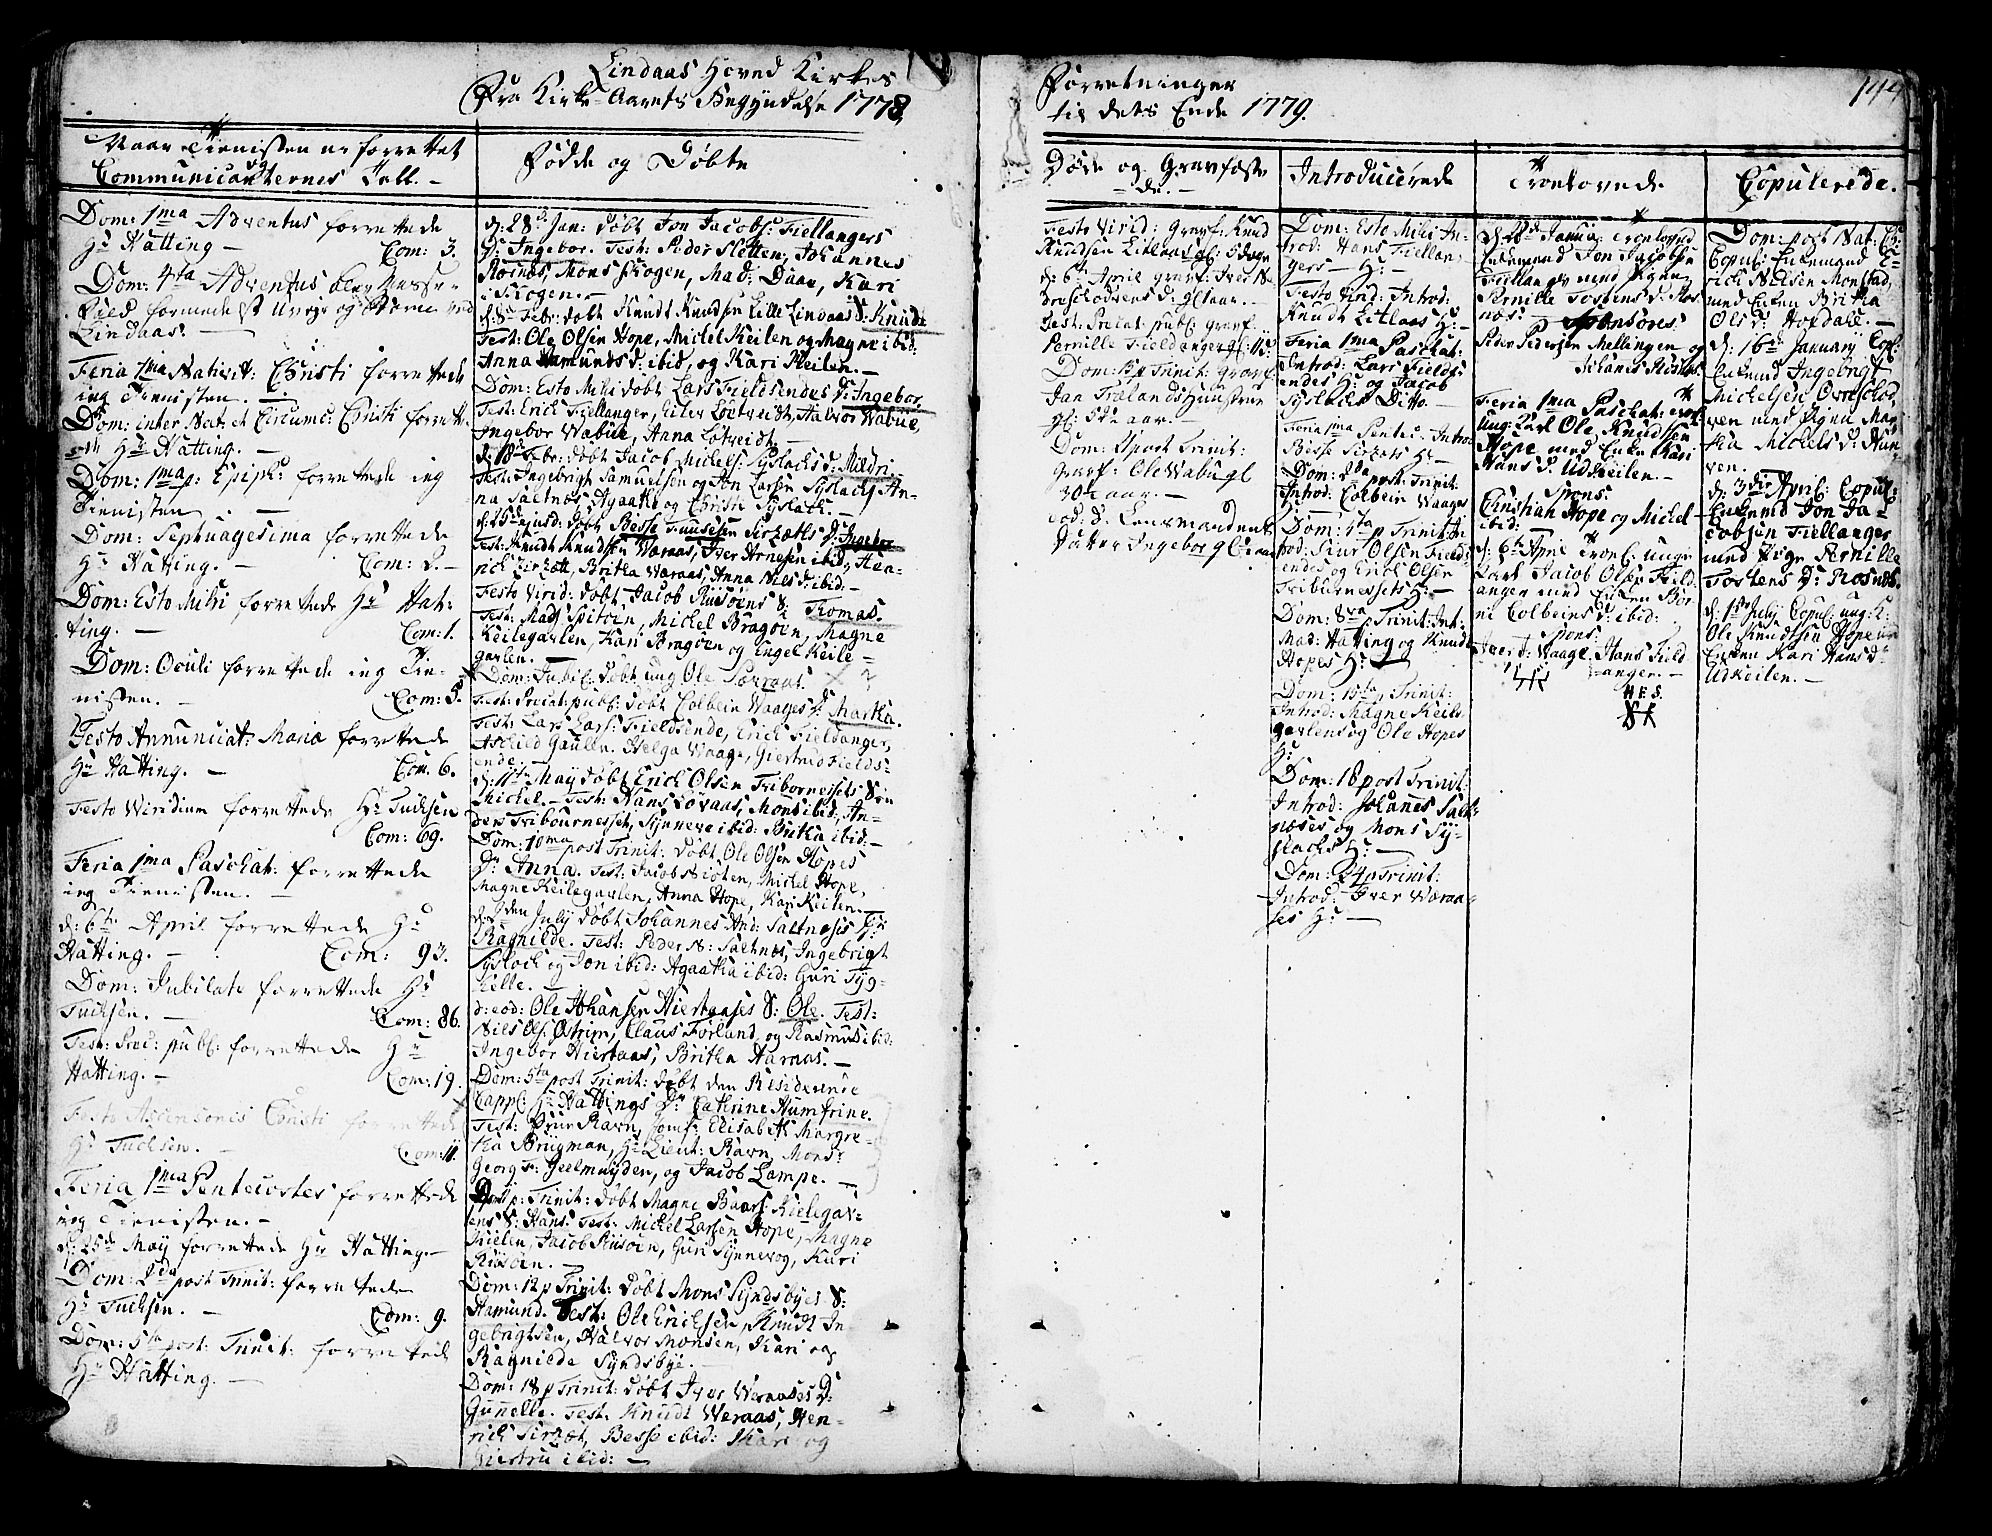 Lindaas Hoved Kirkes
Fra Kirke-Aarets Begyndelse 1778
Forretninger
til dets Ende 1779.
144
Naar Tienisten er forrettet
og
Communicanternes Tall. -
Fødde og Døbte
Døde og Gravfæste
de. -
Introducerede
Troelovede
Copulerede.
Dom: 1ma Adventus forrettede
Hr Hatting - Com: 3.
Dom: 4ta Adventus blev Messe-
Fald formedelst Uveyr og Storm ved
Lindaas. -
Feria 1ma Nativit: Christi forrettede
ieg Tienisten. -
Dom: inter Nat: et Circumc: Christi forrette-
de Hr Hatting. -
Dom: 1ma p: Epiph: forrettede ieg
Tienisten. -
Dom: Septuagesima forrettede
Hr Hatting. - Com: 2. -
Dom: Esto Mihi forrettede Hr Hat-
ting. - Com: 1.
Dom: Oculi forrettede ieg Tie-
nisten. - Com: 5.
Festo Annunciat: Mariæ forrettede
Hr Hatting. - Com. 6.
Festo Viridium forrettede Hr Tuchsen
Com: 69.
Feria 1ma Paschat: forrettede
ieg Tienisten. -
d: 6te April forrettede Hr
Hatting. - Com: 93.
Dom: Jubilate forrettede Hr
Tuchsen. - Com: 86.
Fest: Prec: publ: forrettede Hr
Hatting. - Com: 19.
Festo Ascensionis Christi forrettede
Hr Tuchsen. - Com: 11.
Feria 1ma Pentecostes forrettede
ieg Tienisten. -
d: 25de May forrettede Hr Hatting. -
Dom: 2da post Trinit: forrettede
Hr Tuchsen. - Com: 9.
Dom: 5ta post: Trinit: forrettede
Hr Hatting. -
d: 28d: Jan: døbt Jon Jacobs: Fiellangers
D: Ingebor. Test: Peder Sletten, Johannes
Rosnes, Mons Skogen, Mad: Daae, Kari
i Skogen. -
d: 8de Febr: døbt Knudt Knudsen Lille Lindaas S: Knudt
Test: Ole Olsen Hope, Michel Keilen og Magne ibid:
Anna Amunds d: ibid, og Kari Keilen. -
Dom: Esto Mihi døbt Lars Fieldsendes D: Ingebor.
Test: Erich Fiellanger, Eiler Løtveidt, Halvor Wabüe,
Ingebor Wabüe, Anna Løtveidt. -
d: 18de Febr: døbt Jacob Michels: Syslachs D: Mildri.
Test: Ingebrigt Samuelsen og Jon Larsen Syslach, An-
na Saltnæs, Agaathe og Christi Syslach. -
d: 25de ejusd: døbt Besse Sirzætts D: Ingebor
Test: Knudt Knudsen Væraas, Iver Arnesen ibid, Hen-
rich Sirzætt, Britha Væraas, Anna Nils d: ibid: -
Festo Virid: døbt Jacob Riisøens S: Thomas.
Test: Mads Spitøen, Michel Bragøen, Magne
Keilegavlen, Kari Bragøen og Engel Keile-
gavlen. -
Dom: Jubil: døbt ung Ole
Fest: Precat: publ: døbt Colbein Waages D: Martha.
Test: Lars Lars: Fieldsende, Erich Fieldanger,
Aschild Gaulen, Helga Waage, Giertrud Fields-
ende. -
d: 11te May døbt Erich Olsen Tribornessets Søn
Michel. - Test: Hans Løvaas, Mons ibid:, An-
ders Tribournesset, Synneve ibid: Britha ibid: -
Dom: 10ma post Trinit: døbt Ole Olsen Hopes
Dr Anna. Test: Jacob Skioten, Michel Hope,
Magne Keilegavlen, Anna Hope, Kari Keilen. -
d: 9den July døbt Johannes And: Saltnæsis D:
Ragnilde. Test: Peder N: Saltnæs, Ingebrigt
Syslach og Jon ibid: Agaatha ibid: Guri Syg-
helle. -
d: eod: Ole Johansen Hiertaases S: Ole. Test:
Nils Ols: Østrim, Claus Førland, og Rasmus ibid:
Ingebor Hiertaas, Britha Haraas. -
Dom: 5ta post Trinit: døbt den Residerende
Capp: Hr Hattings Dr Cathrine Humfrine.
Test: Frue Ravn, Jomf: Elisabeth Margre-
tha Brügman, Hr Lieut: Ravn, Monsr
Georg F: Geelmuyden, og Jacob Lampe. -
p: Trinit: døbt Magne Baars: Kielegav-
lens S: Hans: Test: Michel Larsen Hope, Magne
Kielen, Jacob Riisøen, Guri Synnevog, Kari
Riisøen. -
Dom: 12 p Trinit: døbt Mons Syndsbyes S:
Hamund. Test: Ole Erichsen, Knudt In-
gebrigtsen, Halvor Monsen, Kari og
Ragnilde Syndsbye. -
Dom: 18 p Trinit: døbt Iver Weraases D:
Gunelle. Test: Knudt Weraas, Hen-
rich Sirzæt, Besse ibid: Kari og
Giertru ibid: -
Festo Virid: Gravf: Knud
Knudsen Litlaas gl: 5 dage
d: 6te April gravf:
Fest: Precat: publ: gravf:
Pernille Fieldanger gl:
Dom: 13 p Trinit: gravf:
Jan Træland Hunstrue
gl: aar. -
Dom: post Trinit:
gravf: Ole Wabu gl
30 aar. -
eod: d: Lensmandens
Datter Ingebor gl
Dom: Esto Mihi In-
trod: Hans Fiellan-
gers H: -
Festo Virid: Introd:
Knudt Litlaas H: -
Feria 1ma Paschat:
Introd: Lars Fields-
endes H: og Jacob
Syslachs Ditto. -
Feria 1ma Pentec: Introd:
Besse Sirzæts H: -
Dom: 2da post: Trinit:
Introd: Colbein Waages
Dom: 5ta p Trinit: In-
trod: Siur Olsen Fields-
endes og Erich Olsen
Triburnessets H: -
Dom: 8va p Trinit: Int:
Mad: Hatting og Knudt
Hopes H: -
Dom: 10ta Trinit:
Introd: Magne Keile-
gavlens og Ole Hopes
H:
Dom: 18 post Trinit:
Introd: Johannes Salt-
næses og Mons Sy-
slachs H: -
Dom: 24 p Trinit:
Introd: Iver Weraa-
ses H: -
d: Janua: Troeloved
Enkemand Jon Jacobsen
Fiellanger med Pigen
Pernille Tostens D: Ros-
næs: - Sponsores:
Peder Pedersen Mellingen og
Johanes
Feria 1ma Paschat: troel:
Ung: Karl Ole Knudsen
Hope med Enke Kari
Hans D: Udkeilen. -
Spons:
Christian Hope og Michel
ibid: -
d: 6te April Troel: unge
Karl Jacob Olsen Field-
anger med Enken Bor-
ni Colbeins D: ibid:
Spons:
Waage. Hans Field-
anger. -
H. E. S.
Dom: post Nat: Ch:
Copul: Enkemand E-
rich Nielsen Monstad,
med Enken Britha
Ols Dr Hopdahl. -
d: 16de January Cop:
Enkemd Ingebrigt
Michelsen
med Pigen Mar-
tha Michels Dr
ven.
d: 3die April: Copul:
Enkemd Jon Ja-
cobsen Fiellanger
med Pige Pernille
Tostens Dr Rosnes.
d: 1ste July Copul: ung: K:
Ole Knudtsen Hope med
Enken Kari Hans Dr
Udkeilen. -